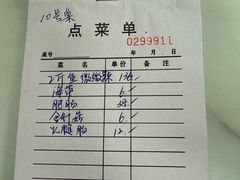 10号桌
点菜单
0299911
桌号 年 月 日
菜名 单价 备注
2斤鱼微微辣 136.-
海带 6.-
肥肠 38.-
金针菇 6.-
火腿肠 12.-